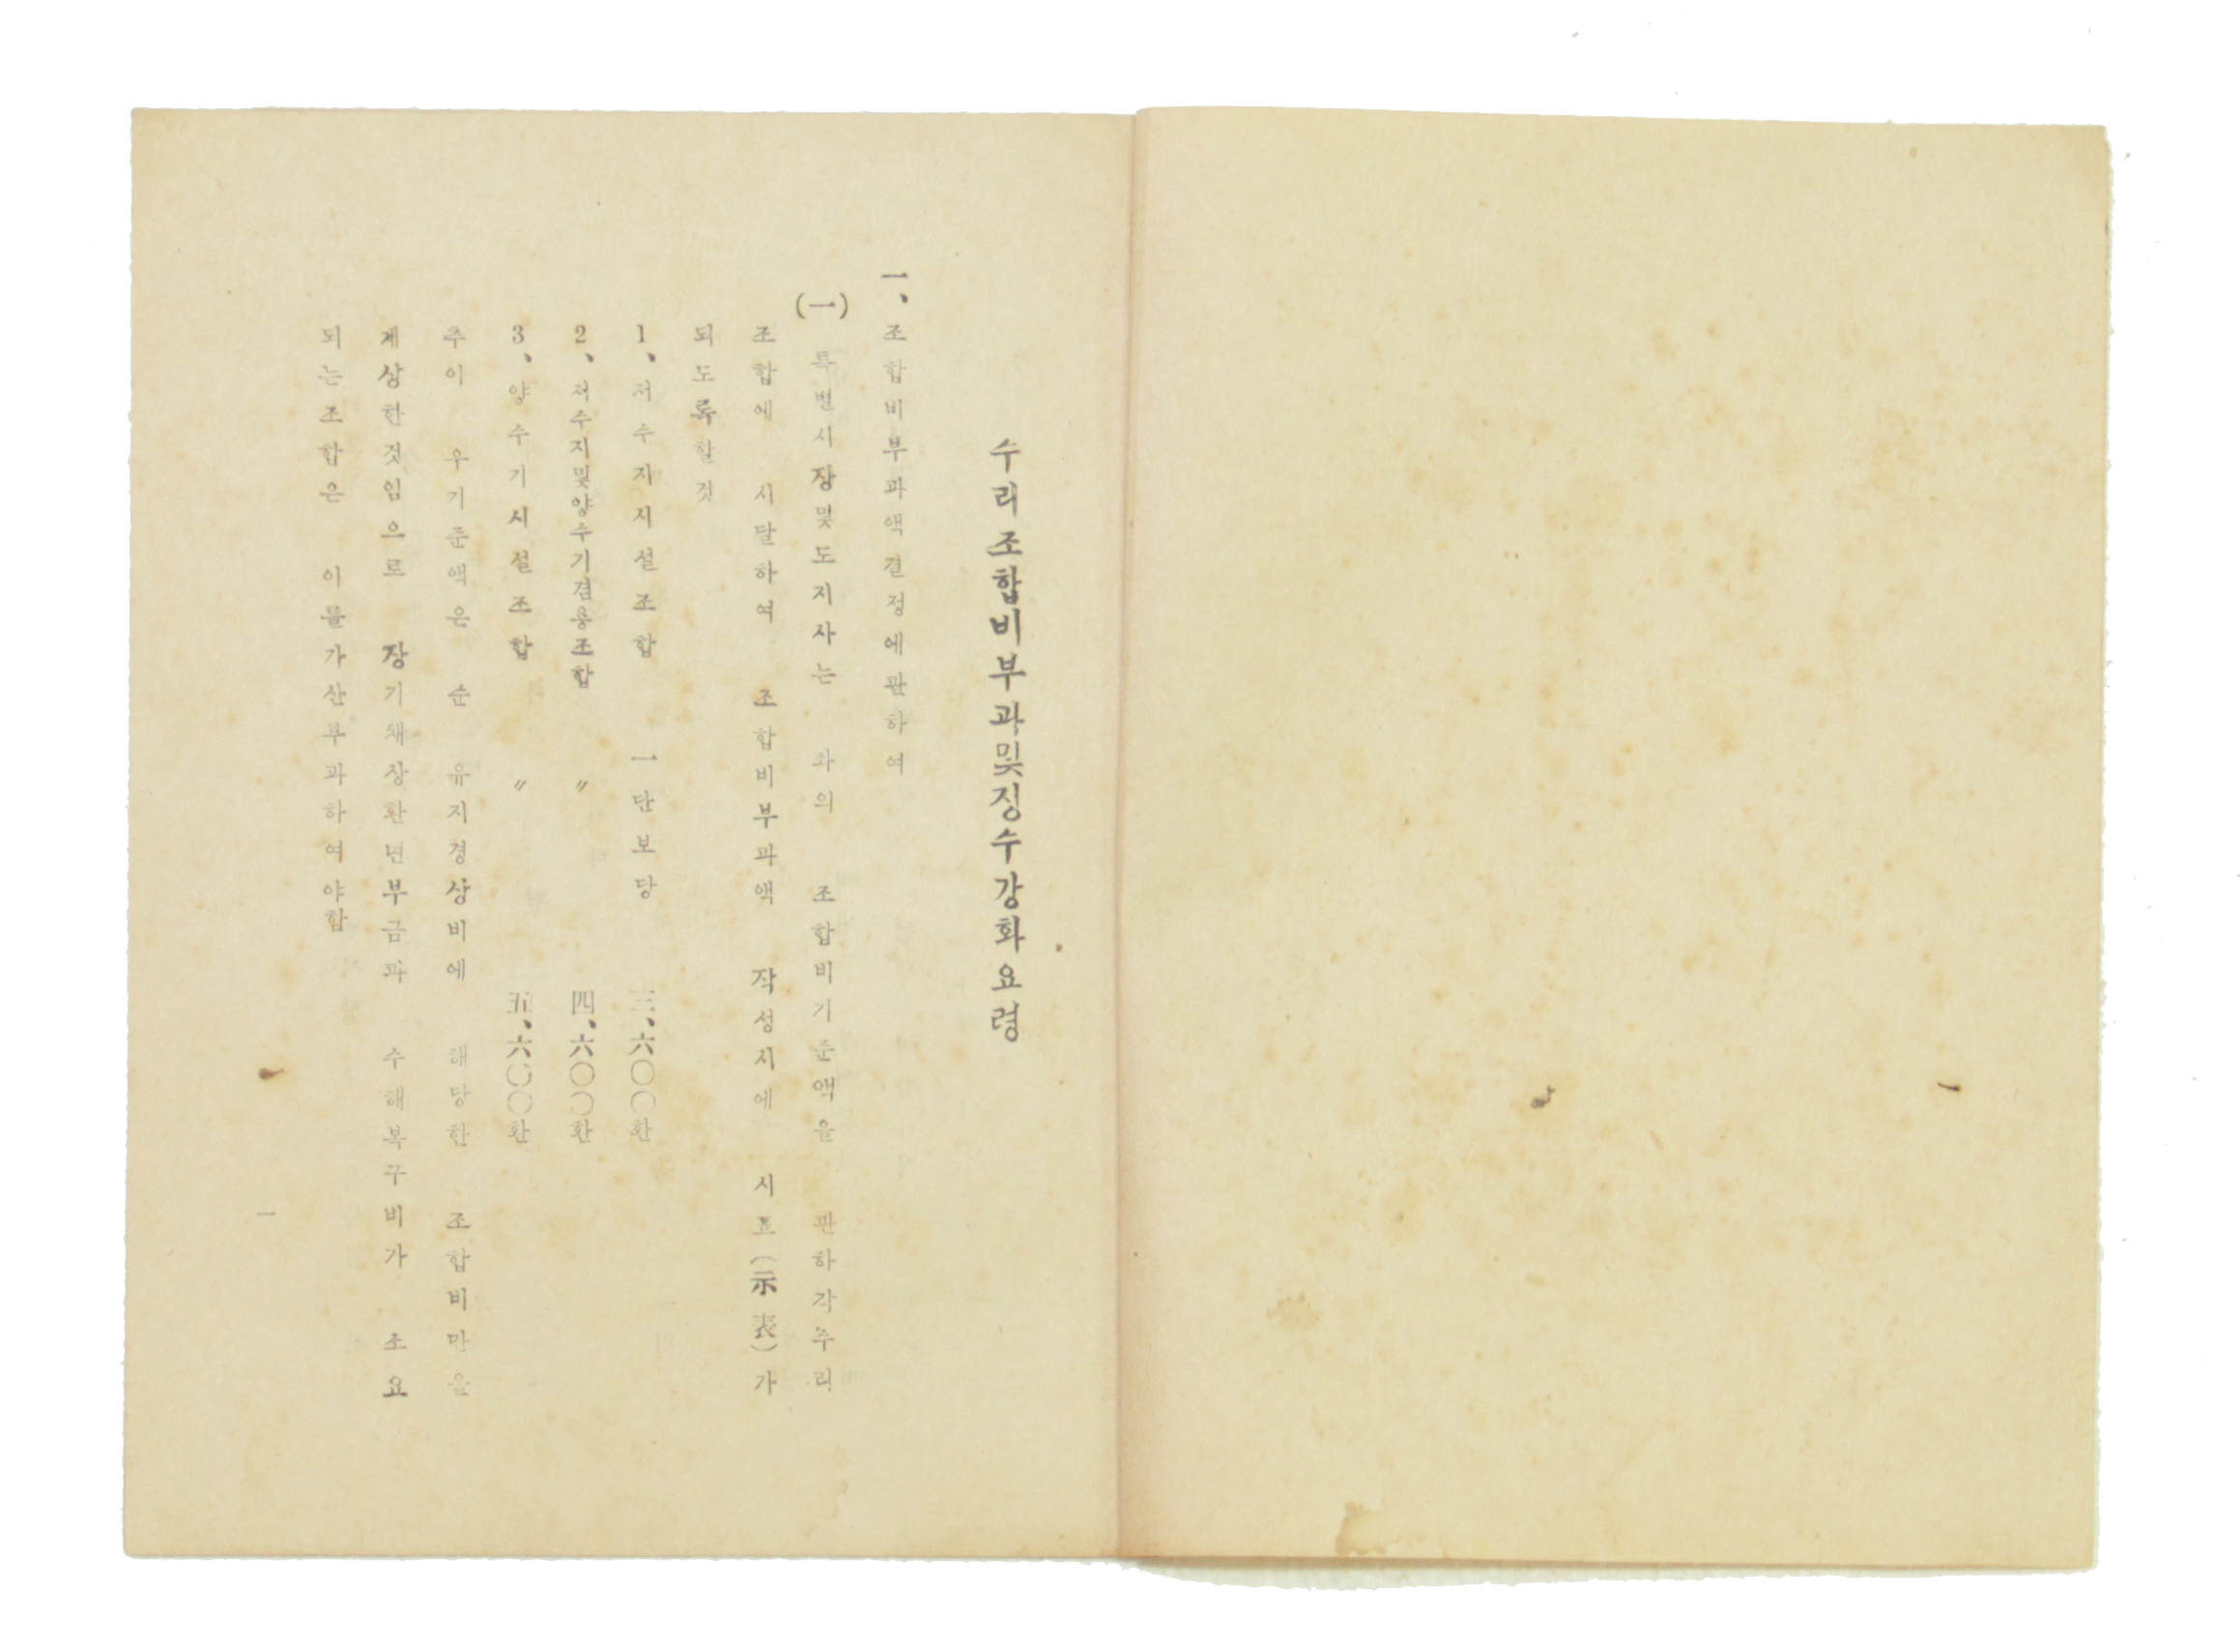 수리조합비부과및징수강화요령
一、조합비부과액결정에관하여
(一) 특별시장및도지사는 좌의 조합비기준액을 관하각수리
조합에 시달하여 조합비부과액 작성시에 시표(示表)가
되도록할것
1、저수지시설조합 一단보당 三、六〇〇환
2、저수지및양수기겸용조합 〃 四、六〇〇환
3、양수기시설조합 〃 五、六〇〇환
주이 우기준액은 순 유지경상비에 해당한 조합비만을
계상한것임으로 장기채상환년부금과 수해복구비가 소요
되는조합은 이를가산부과하여야함
一